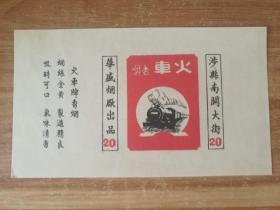 涉縣南關大街
20
火車香烟
華盛烟廠出品
20
火車牌香烟
烟絲金黄 製造精良
吸時可口 氣味清香